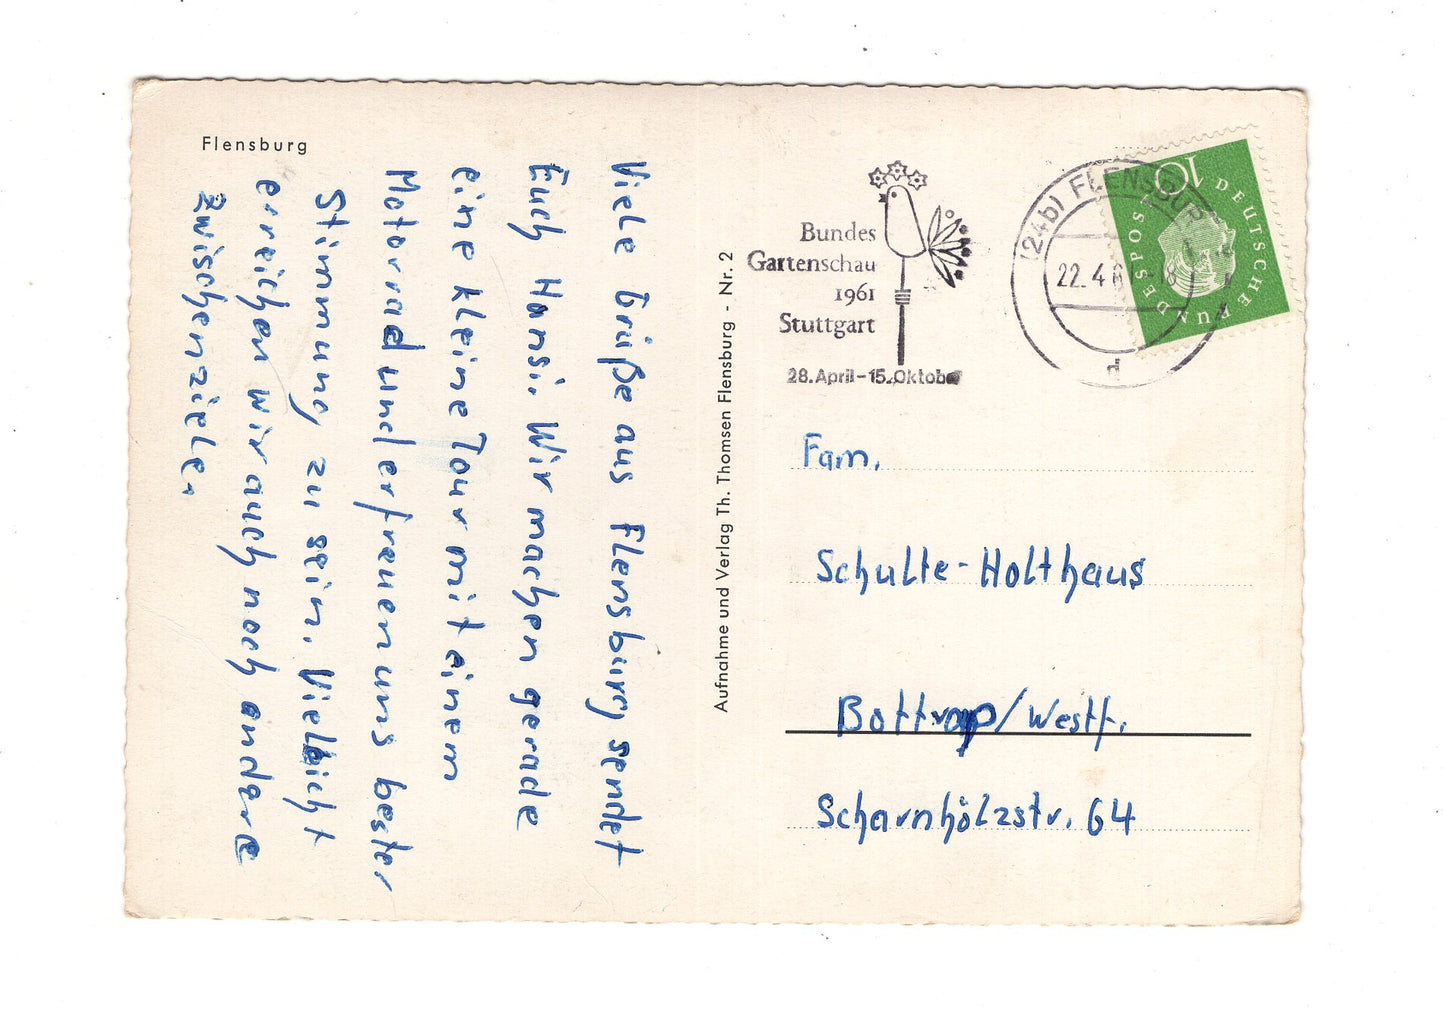 Flensburg
Viele Grüße aus Flensburg sendet
Euch Hansi. Wir machen gerade
eine kleine Tour mit einem
Motorrad und erfreuen uns bester
Stimmung zu sein. Vielleicht
erreichen wir auch noch andere
Zwischenziele.
Aufnahme und Verlag Th. Thomsen Flensburg - Nr. 2
Bundes
Gartenschau
1961
Stuttgart
28. April-15. Oktober
(24b) FLENSBURG
22.4.61-18
d
10
DEUTSCHE
BUNDESPOST
Fam.
Schulte-Holthaus
Bottrop/Westf.
Scharnhölzstr. 64